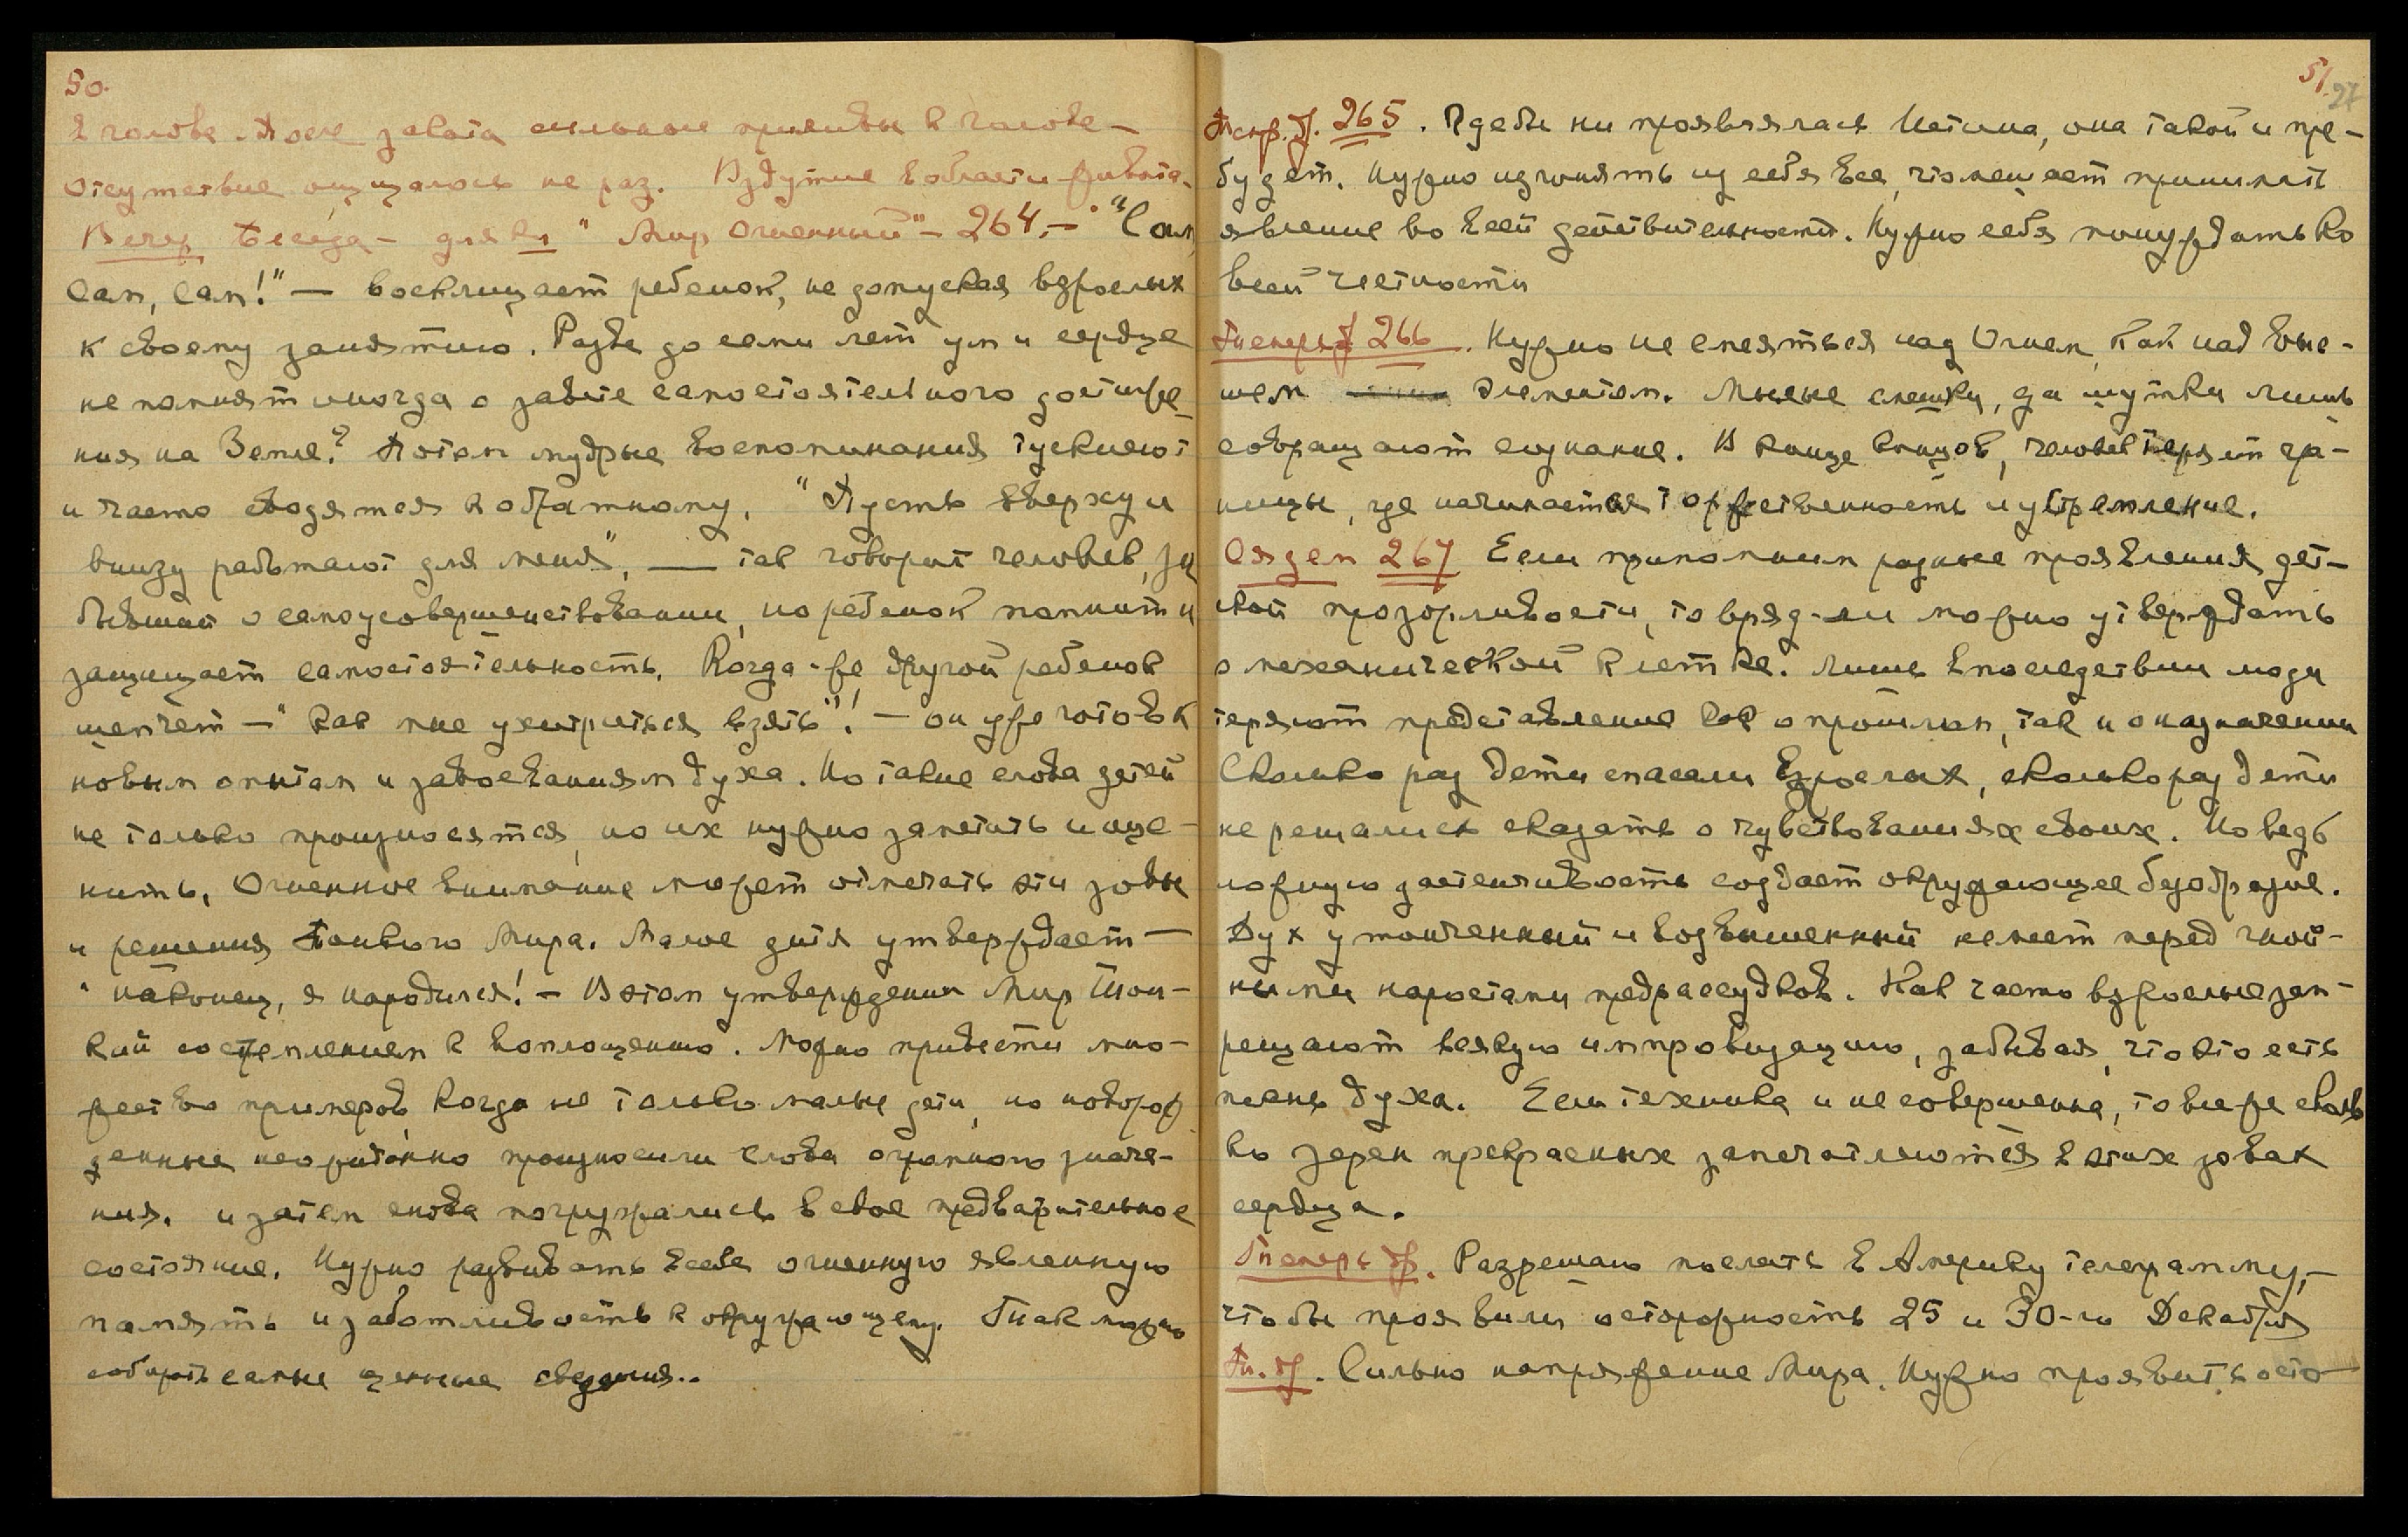 50.
в голове. После заката сильные приливы к голове –
Отсутствие ощущалось не раз. Вздутие в области живота.
Вечер Беседа – для кн "Мир Огненный" – 264. – "Сам,
сам, сам!" — восклицает ребенок, не допуская взрослых
к своему занятию. Разве до семи лет ум и сердце
не помнят иногда о завете самостоятельного достиже-
ния на Земле? Потом мудрые воспоминания тускнеют
и часто сводятся к обратному. "Пусть вверху и
внизу работают для меня", — так говорит человек, за
бывший о самоусовершенствовании, но ребенок помнит и
защищает самостоятельность. Когда-же другой ребенок
шепчет – "как мне ухитриться взять"! – он уже готов к
новым опытам и завоеваниям духа. Но такие слова детей
не только произносятся, но их нужно заметить и оце-
нить. Огненное внимание может отмечать эти зовы
и решения Тонкого Мира. Малое дитя утверждает —
"наконец, я народился! – В этом утверждении Мир Тон-
кий со стремлением к воплощению. Можно привести мно-
жество примеров, когда не только малые дети, но новорож
денные неожиданно произносили слова огромного значе-
ния. и затем снова погружались в свое предварительное
состояние. Нужно развивать в себе огненную явленную
память и заботливость к окружающему. Так можно
собирать самые ценные сведения..
51 27
Теперь др. 265. Где бы ни проявлялась Истина, она такой и пре-
будет. Нужно изгонять из себя все, что мешает принимать
явление во всей действительности. Нужно себя понуждать ко
всей честности
Теперь др 266. Нужно не смеяться над Огнем, как над выс-
шем элементом. Мысие смешки, да шутки лишь
совращают сознание. В конце концов, человек теряет гра-
ницы, где начинается торжественность и устремление.
Сядем 267 Если припомним разные проявления дет-
ской прозорливости, то вряд-ли можно утверждать
о механической клетке. Лишь впоследствии люди
теряют представление как о прошлом, так и о назначении
Сколько раз дети спасали взрослых, сколько раз дети
не решались сказать о чувствованиях своих. Но ведь
ложную застенчивость создает окружающее безобразие.
Дух утонченный и возвышенный немеет перед гной-
ными наростами предрассудков. Как часто взрослые зап-
рещают всякую импровизацию, забывая, что это есть
песнь духа. Если техника и несовершенна, то все же сколь
ко зерен прекрасных запечатляются в этих зовах
сердца.
Теперь др. Разрешаю послать в Америку телеграмму, –
чтобы проявили осторожность 25 и 30-го Декабря
Т. др. Сильно напряжение Мира. Нужно проявить осто